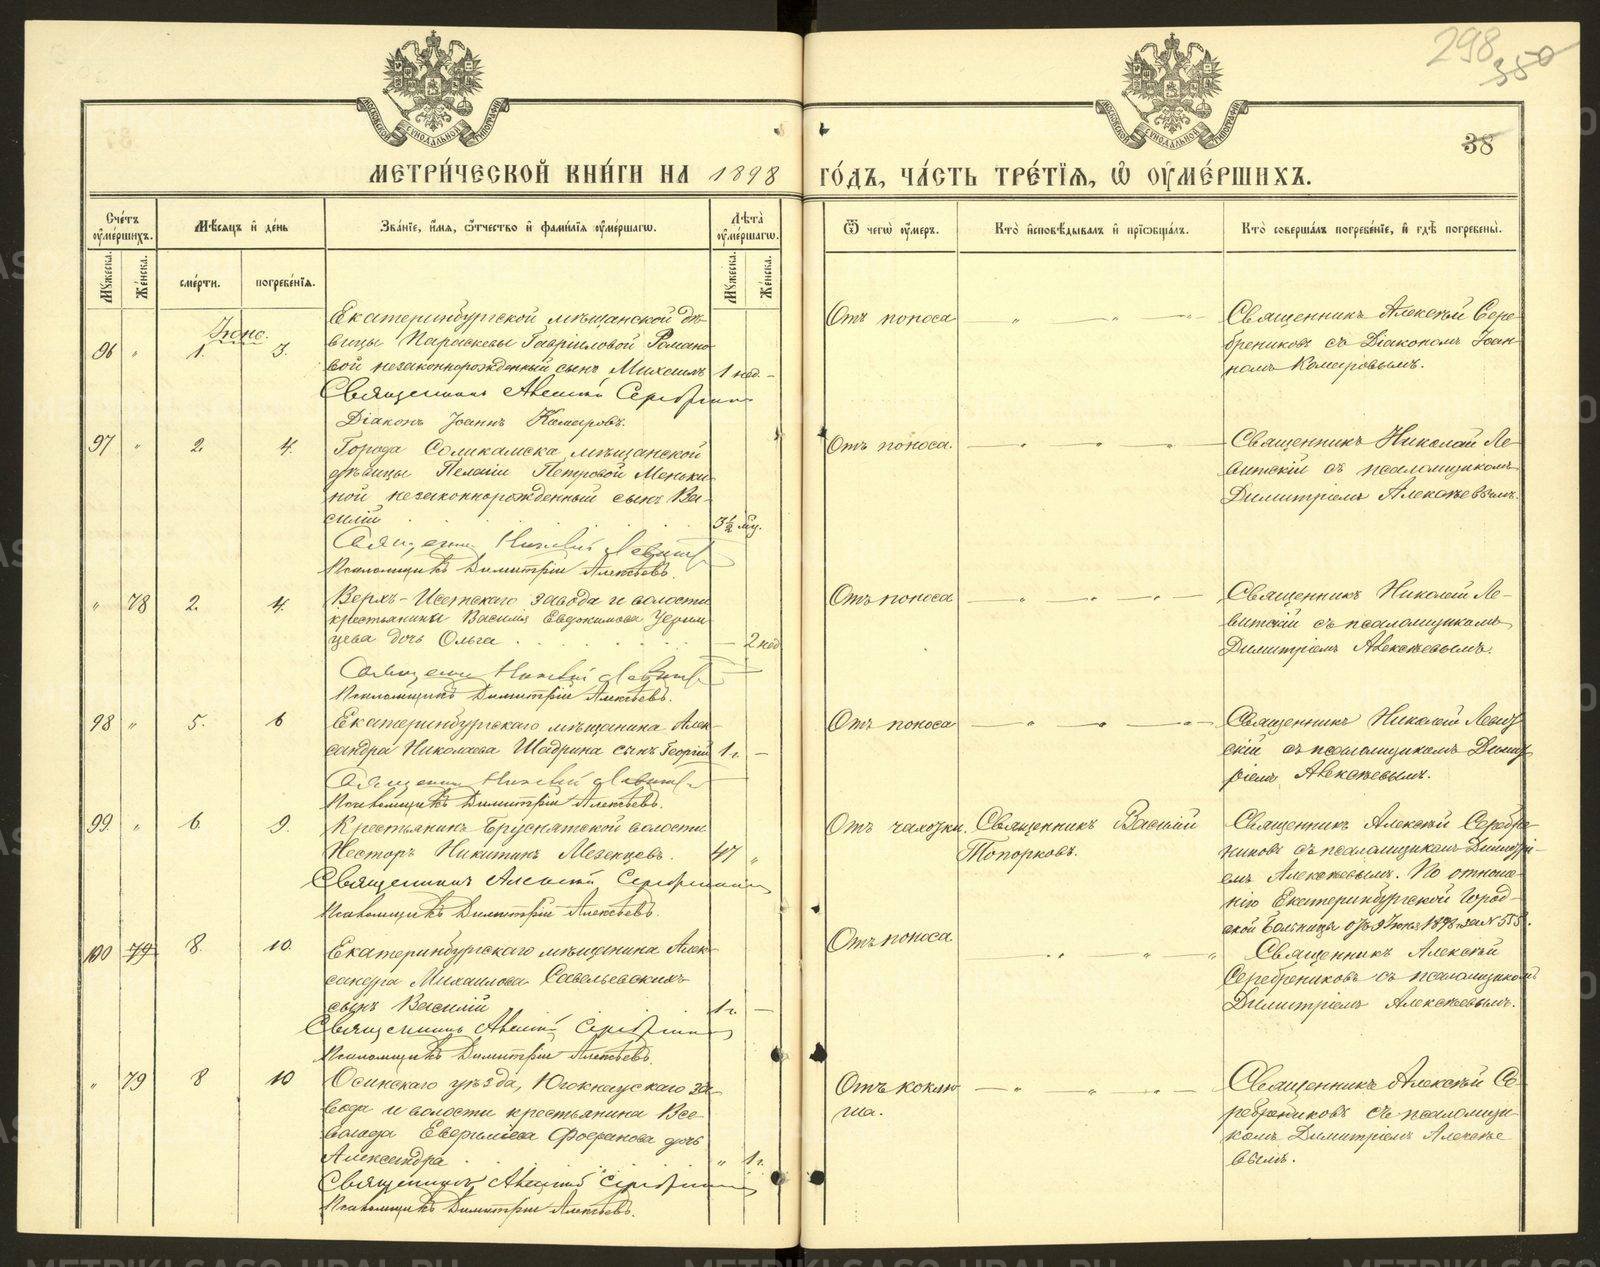 298
350
38
МОСКОВСКОЙ СѴНОДАЛЬНОЙ ТИПОГРАФІИ
МОСКОВСКОЙ СѴНОДАЛЬНОЙ ТИПОГРАФІИ
МЕТРИ́ЧЕСКОЙ КНИ́ГИ НА 1898 ГО́ДЪ, ЧА́СТЬ ТРЕ́ТІѦ, Ѡ ОУМЕ́РШИХЪ.
Сче́тъ оумéршихъ. Мѣ́сяцъ и҆ де́нь Зва́нїе, и҆́мѧ, ѻ҆́тчество и҆ фами́лїѧ оумéршагѡ. Лѣ́та оумéршагѡ. Ѿ чегѡ̀ оу҆́меръ. Кто̀ и҆сповѣ́дывалъ и҆ прїѡбща́лъ. Кто̀ соверша́лъ погребе́нїе, и҆ гдѣ̀ погребены̀.
Мꙋ́жеска. Же́нска. смéрти. погребе́нїѧ. Мꙋ́жеска. Же́нска.
Іюнь.
96 " 1. 3.
Екатеринбургской мѣщанской дѣ-
вицы Параскевы Гавриловой Романо-
вой незаконнорожденный сынъ Михаилъ 1 нед. -
Священникъ Алексій Серебрениковъ
Діаконъ Іоаннъ Комаровъ.
Отъ поноса " " "
Священникъ Алексѣй Сере-
брениковъ съ Діакономъ Іоан-
номъ Комаровымъ.
97 " 2. 4.
Города Соликамска мѣщанской
дѣвицы Пелагіи Петровой Менько-
ной незаконнорожденный сынъ Ва-
силій 3½ мц.
Священникъ Николай Левитскій
Псаломщикъ Димитрій Алексѣевъ.
Отъ поноса. " " "
Священникъ Николай Ле-
витскій съ псаломщикомъ
Димитріемъ Алексѣевымъ.
" 78 2. 4.
Верхъ-Исетскаго завода и волости
крестьянина Василія Евдокимова
цева дочь Ольга - 2 нед
Священникъ Николай Левитскій
Псаломщикъ Димитрій Алексѣевъ.
Отъ поноса " " "
Священникъ Николай Ле-
витскій съ псаломщикомъ
Димитріемъ Алексѣевымъ.
98 " 5. 6
Екатеринбургскаго мѣщанина Алек-
сандра Николаева Шадрина сынъ Георгій 1 г. -
Священникъ Николай Левитскій
Псаломщикъ Димитрій Алексѣевъ.
Отъ поноса " " "
Священникъ Николай Левит
скій съ псаломщикомъ Димит
ріемъ Алексѣевымъ.
99. " 6. 9.
Крестьянинъ Бруснятской волости
Несторъ Никитинъ Мезенцевъ. 47 "
Священникъ Алексій Серебрениковъ
Псаломщикъ Димитрій Алексѣевъ.
Отъ чахотки. Священникъ Василій
Топорковъ.
Священникъ Алексѣй Серебре-
никовъ съ псаломщикомъ Димитрі-
емъ Алексѣевымъ. По отноше-
нію Екатеринбургской Город-
ской Больницы отъ 9 Іюня 1898 г. за № 555.
100 79 8. 10.
Екатеринбургскаго мѣщанина Алек-
сандра Михаилова Савельевскихъ
сынъ Василій 1 г. -
Священникъ Алексій Серебрениковъ
Псаломщикъ Димитрій Алексѣевъ.
Отъ поноса " " "
Священникъ Алексѣй
Серебрениковъ съ псаломщикомъ
Димитріемъ Алексѣевымъ.
" 79 8 10
Осинскаго уѣзда, Югокнауфскаго за-
вода и волости крестьянина Все-
волода Евфиміева Фофанова дочь
Александра " 1 г.
Священникъ Алексій Серебрениковъ
Псаломщикъ Димитрій Алексѣевъ.
Отъ коклю-
ша. " " "
Священникъ Алексѣй Се-
ребрениковъ съ псаломщи-
комъ Димитріемъ Алексѣе-
вымъ.
METRIKI.GASO-URAL.RU